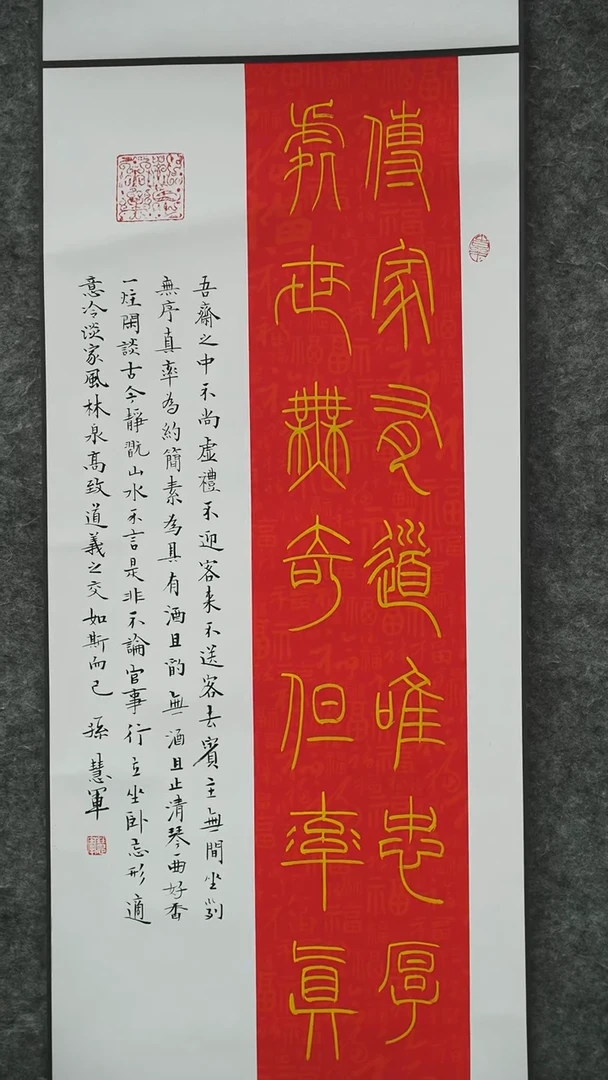 傳家有道唯忠厚
處世無奇但率真
吾齋之中不尚虛禮不迎客來不送客去賓主無間坐列
無序真率為約簡素為具有酒且酌無酒且止清琴一曲好香
一炷閑談古今靜翫山水不言是非不論官事行立坐卧忘形適
意冷淡家風林泉高致道義之交如斯而已 孫慧軍